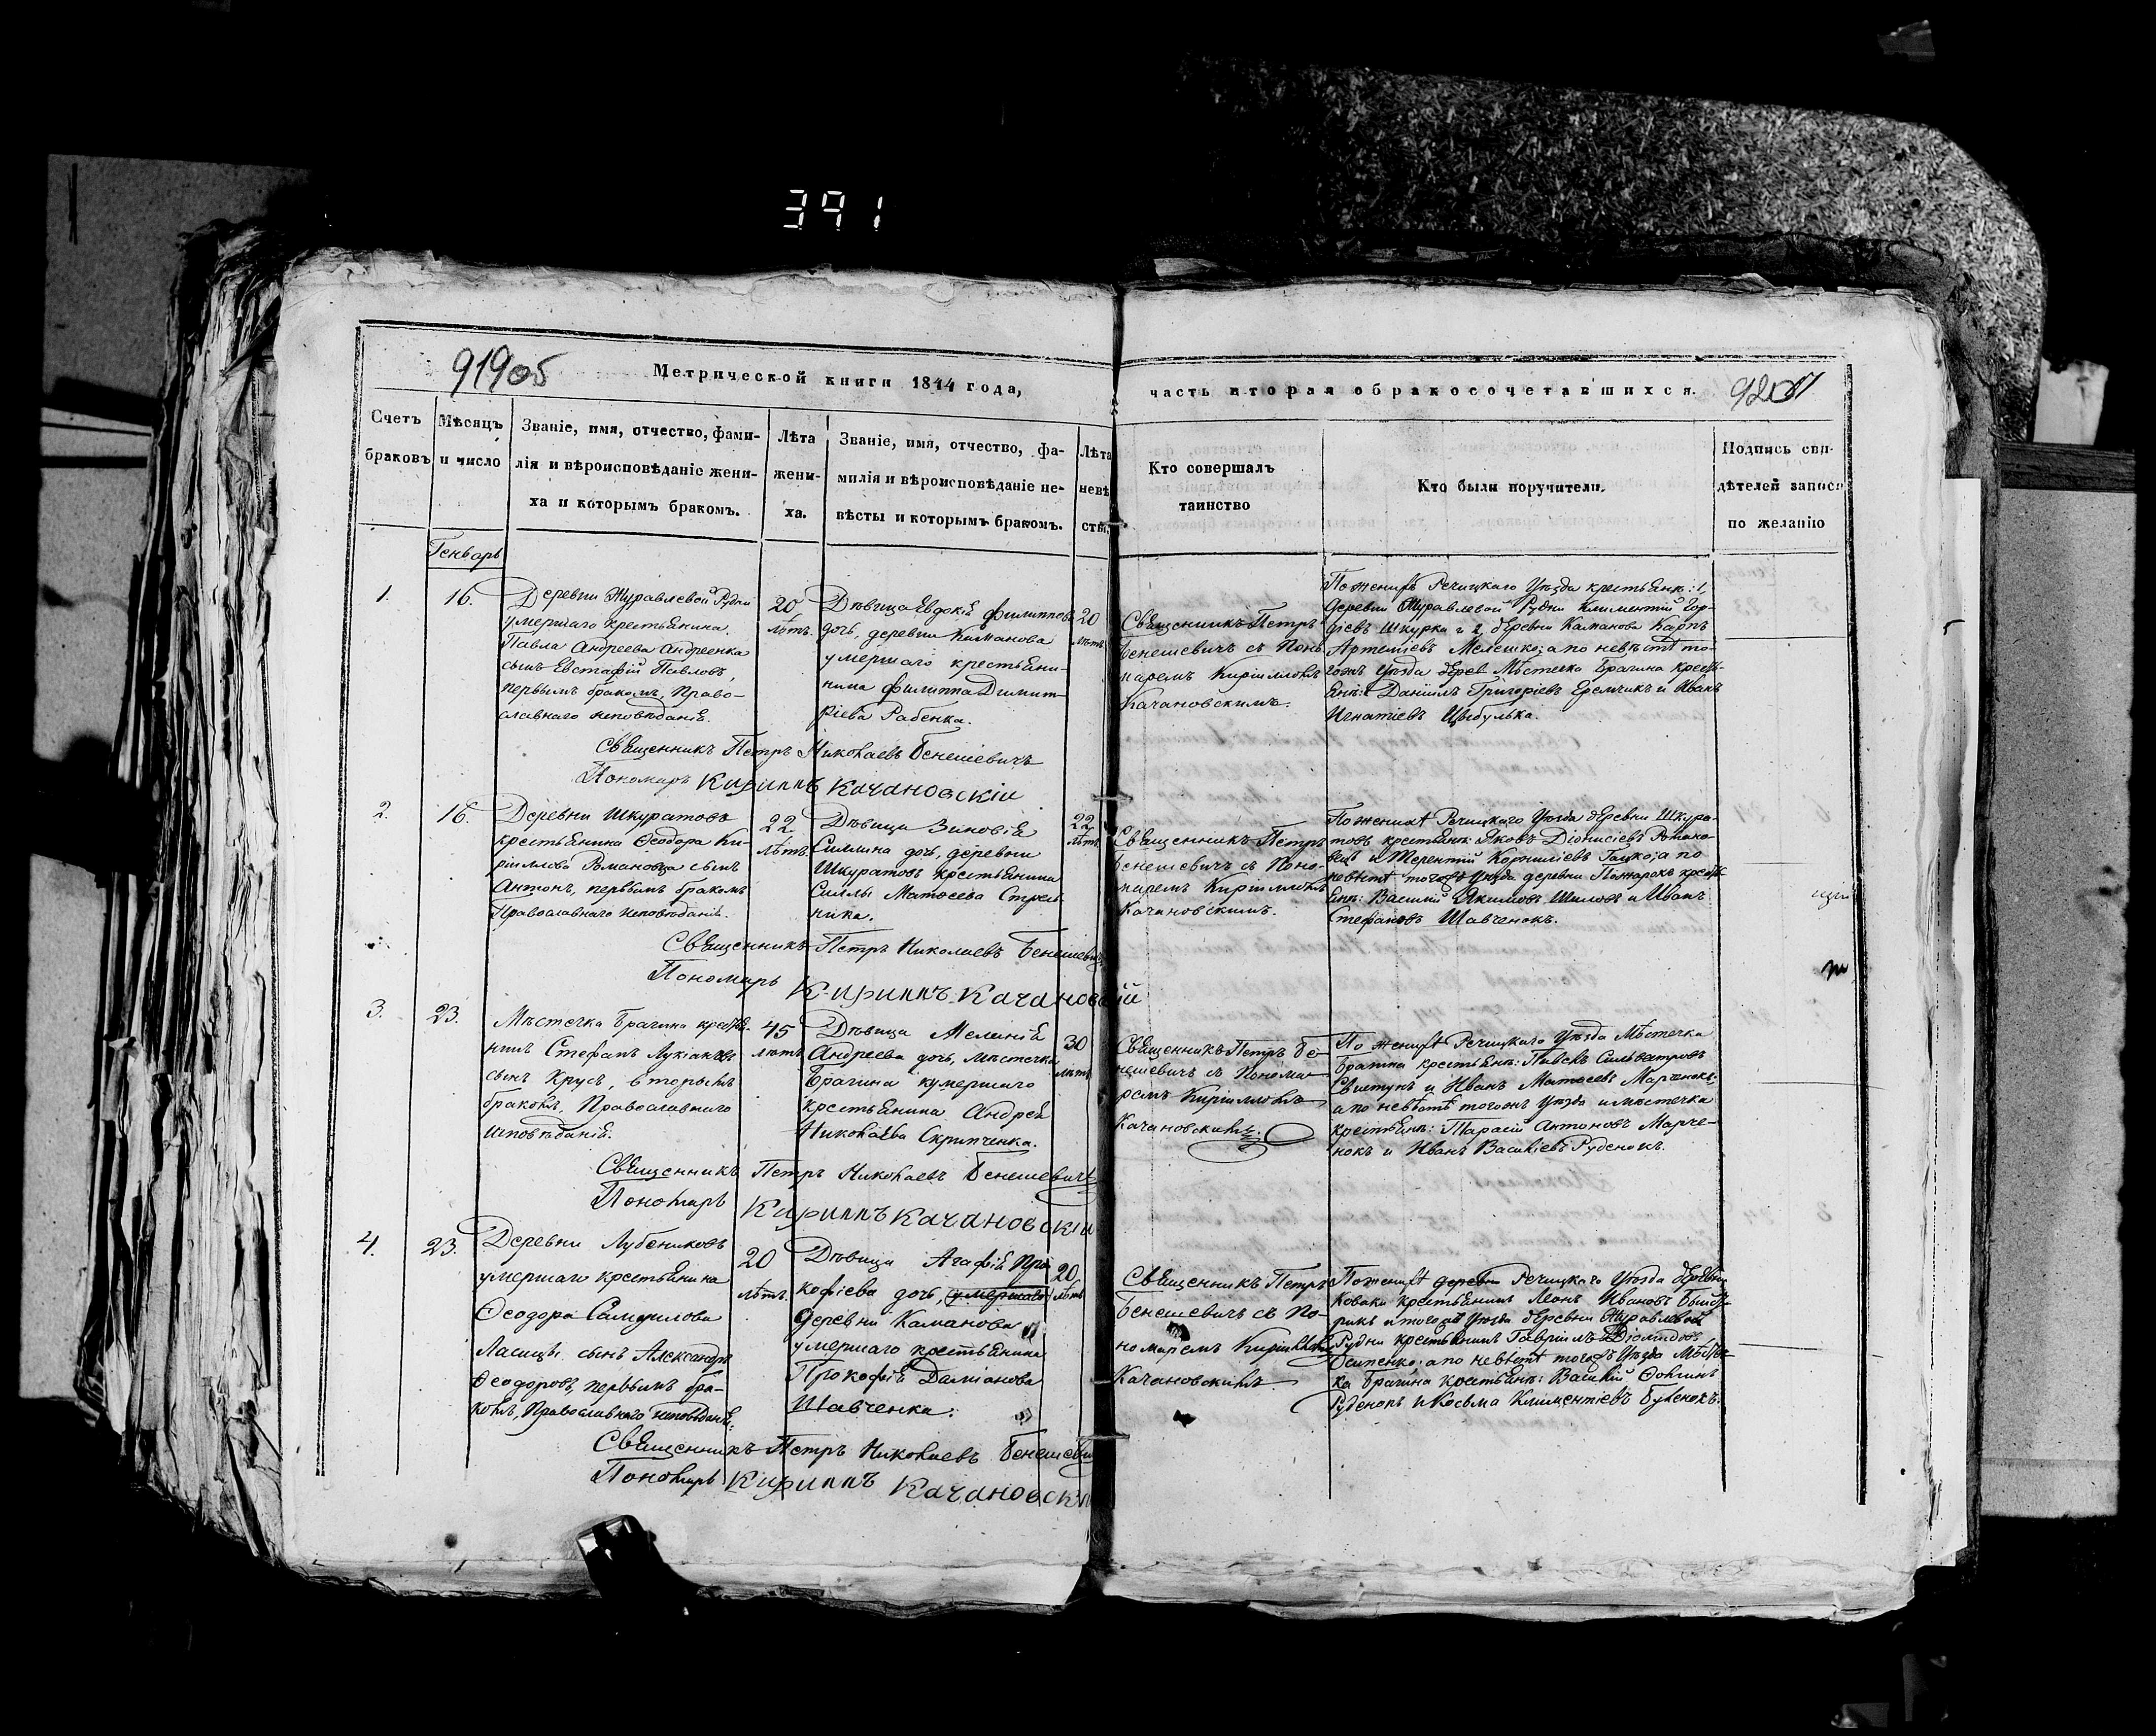 391
919об
Метрической книги 1844 года,
часть вторая о бракосочетавшихся.
920
Счетъ
браковъ
Мѣсяцъ
и число
Званіе, имя, отчество, фами-
лія и вѣроисповѣданіе жени-
ха и которымъ бракомъ.
Лѣта
жени-
ха.
Званіе, имя, отчество, фа-
милія и вѣроисповѣданіе не-
вѣсты и которымъ бракомъ.
Лѣта
невѣ
сты.
Кто совершалъ
таинство
Кто были поручители.
Подпись сви-
дѣтелей записи
по желанію
Генварь
1.
16.
Деревни Журавлевой Рудни
умершаго крестьянина
Павла Андреева Андреенка
сынъ Евстафій Павловъ,
первымъ бракомъ, Право-
славнаго исповѣданія.
20
лѣтъ.
Дѣвица Евдокія Филиппова
дочь, деревни Каманова
умершаго крестьяни-
нина Филиппа Димит-
ріева Рабенка.
20
лѣтъ
Священникъ Петръ
Бенешевичъ съ Поно
маремъ Кирилломъ
Качановскимъ.
По женихѣ Речицкаго Уѣзда крестьяне: 1,
деревни Журавлевой Рудни Климентій Гор-
дѣевъ Шкурка и 2, деревни Каманова Карпъ
Артеміевъ Мелешко; а по невѣстѣ то-
гожъ Уѣзда Мѣстечка Брагина кресть-
яне: Даніилъ Григоріевъ Еремчикъ и Иванъ
Игнатіевъ Цыбулька.
Священникъ Петръ Николаевъ Бенешевичъ
Пономарь Кириллъ Качановскій
2.
16.
Деревни Шкуратовъ
крестьянина Ѳеодора Ки-
риллова Романовца сынъ
Антонъ, первымъ бракомъ
Православнаго исповѣданія.
22
лѣтъ.
Дѣвица Зиновія
Силлина дочь, деревни
Шкуратовъ крестьянина
Силлы Матѳеева Стрель
ника.
22
лѣтъ
Священникъ Петръ
Бенешевичъ съ Поно-
маремъ Кирилломъ
Качановскимъ.
По женихѣ Речицкаго Уѣзда деревни Шкура-
товъ крестьяне: Яковъ Діонисіевъ Романо-
вецъ и Терентій Корниліевъ Гацко; а по
невѣстѣ тогожъ Уѣзда деревни Пожарокъ кресть
яне: Василій Якимовъ Шиловъ и Иванъ
Стефановъ Шавченокъ.
Священникъ Петръ Николаевъ Бенешевичъ
Пономарь Кириллъ Качановскій
3.
23.
Мѣстечка Брагина крестья-
нинъ Стефанъ Лукіановъ
сынъ Хрусъ, вторымъ
бракомъ, Православнаго
исповѣданія.
45
лѣтъ
Дѣвица Меланія
Андреева дочь, мѣстечка
Брагина умершаго
крестьянина Андрея
Николаева Скрипченка.
30
лѣтъ
Священникъ Петръ Бе-
нешевичъ съ Понома-
ремъ Кирилломъ
Качановскимъ.
По женихѣ Речицкаго Уѣзда Мѣстечка
Брагина крестьяне: Павелъ Сильвестровъ
Свистунъ и Иванъ Матѳеевъ Марченокъ;
а по невѣстѣ тогожъ Уѣзда и мѣстечка
крестьяне: Тарасій Антоновъ Марче-
нокъ и Иванъ Василіевъ Руденокъ.
Священникъ Петръ Николаевъ Бенешевичъ
Пономарь Кириллъ Качановскій
4.
23.
Деревни Лубениковъ
умершаго крестьянина
Ѳеодора Самуилова
Ласицы сынъ Александръ
Ѳеодоровъ, первымъ бра-
комъ, Православнаго исповѣданія.
20
лѣтъ
Дѣвица Агафія Про
кофіева дочь, умершаго
деревни Каманова
умершаго крестьянина
Прокофія Даміанова
Шавченка.
20
лѣтъ
Священникъ Петръ
Бенешевичъ съ По-
номаремъ Кирилломъ
Качановскимъ.
По женихѣ деревни Речицкаго Уѣзда деревни
Коваки крестьянинъ Леонъ Ивановъ
и тогожъ Уѣзда деревни Журавлевой
Рудни крестьянинъ Гавріилъ Діомидовъ
Осипенко; а по невѣстѣ тогожъ Уѣзда Мѣстеч
ка Брагина крестьяне: Василій
Руденокъ и Косьма Климентіевъ Буленокъ.
Священникъ Петръ Николаевъ Бенешеви
Пономарь Кириллъ Качановскі